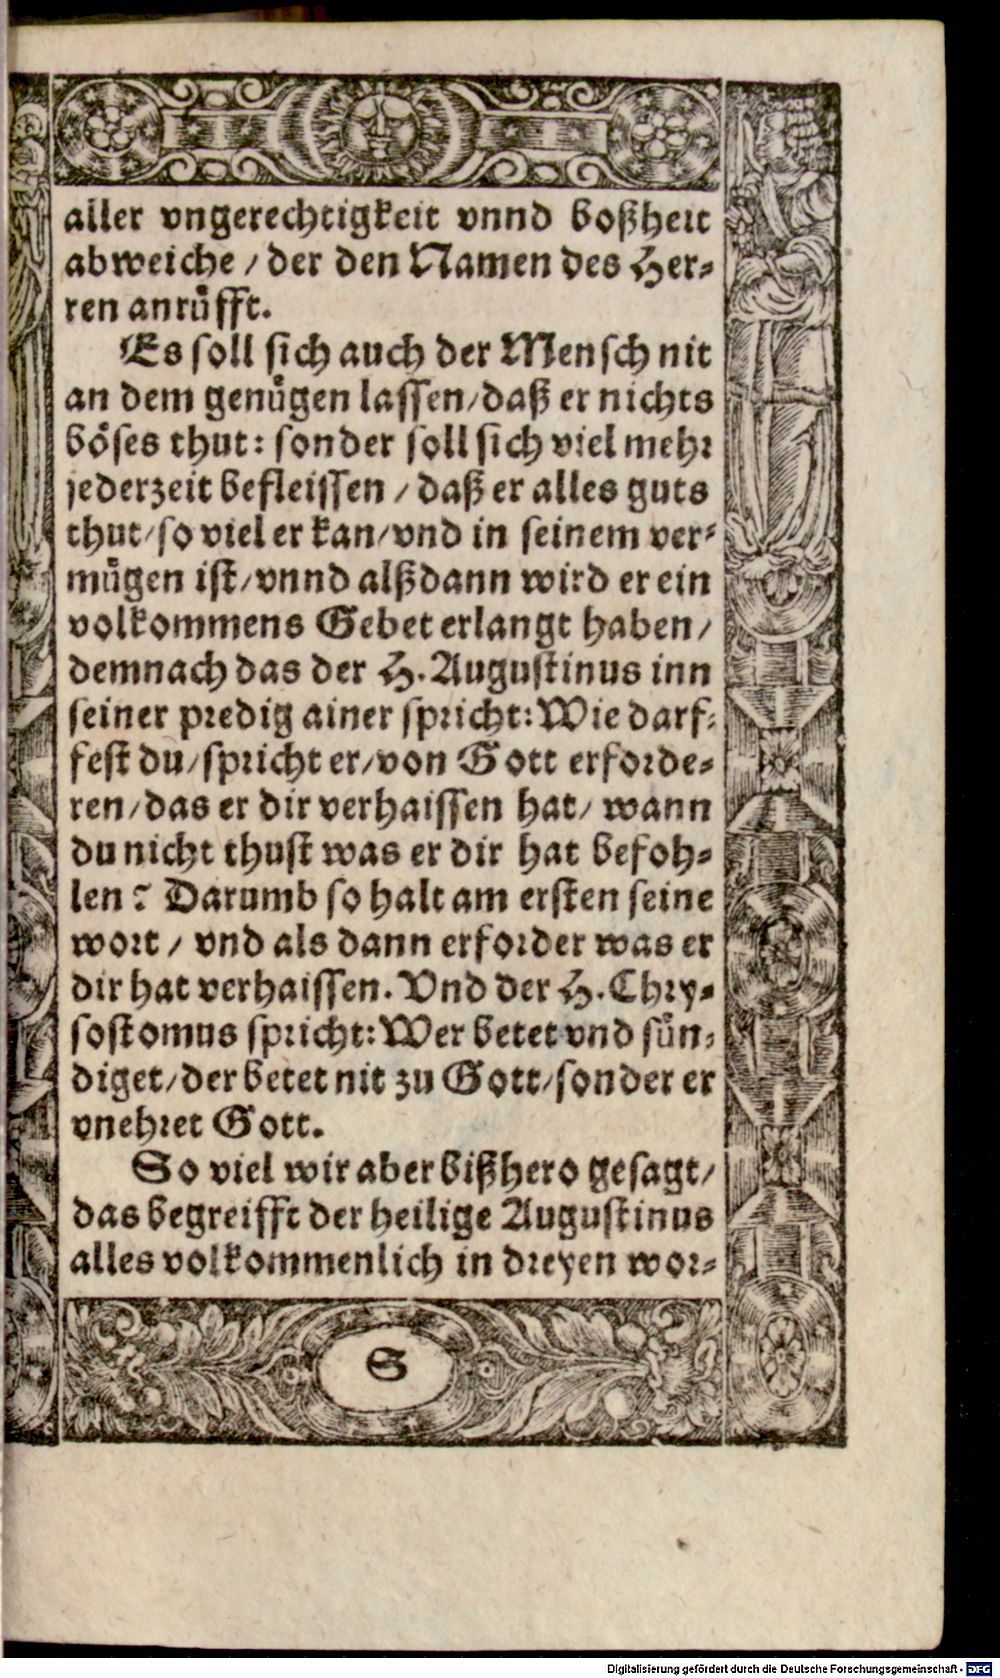 aller vngerechtigkeit vnnd boßheit
abweiche / der den Namen des Her⸗
ren anruͤfft.
Es soll sich auch der Mensch nit
an dem genuͤgen lassen/daß er nichts
boͤses thut: sonder soll sich viel mehr
jederzeit befleissen / daß er alles guts
thut/so viel er kan/vnd in seinem ver⸗
muͤgen ist/vnnd alßdann wird er ein
volkommens Gebet erlangt haben/
demnach das der H. Augustinus inn
seiner predig ainer spricht: Wie darf⸗
fest du/spricht er/von Gott erforde⸗
ren/das er dir verhaissen hat/ wann
du nicht thust was er dir hat befoh⸗
len? Darumb so halt am ersten seine
wort / vnd als dann erforder was er
dir hat verhaissen. Vnd der H. Chry⸗
sostomus spricht: Wer betet vnd suͤn⸗
diget/der betet nit zu Gott/sonder er
vnehret Gott.
So viel wir aber bißhero gesagt/
das begreifft der heilige Augustinus
alles volkommenlich in dreyen wor⸗
S
Digitalisierung gefördert durch die Deutsche Forschungsgemeinschaft - DFG